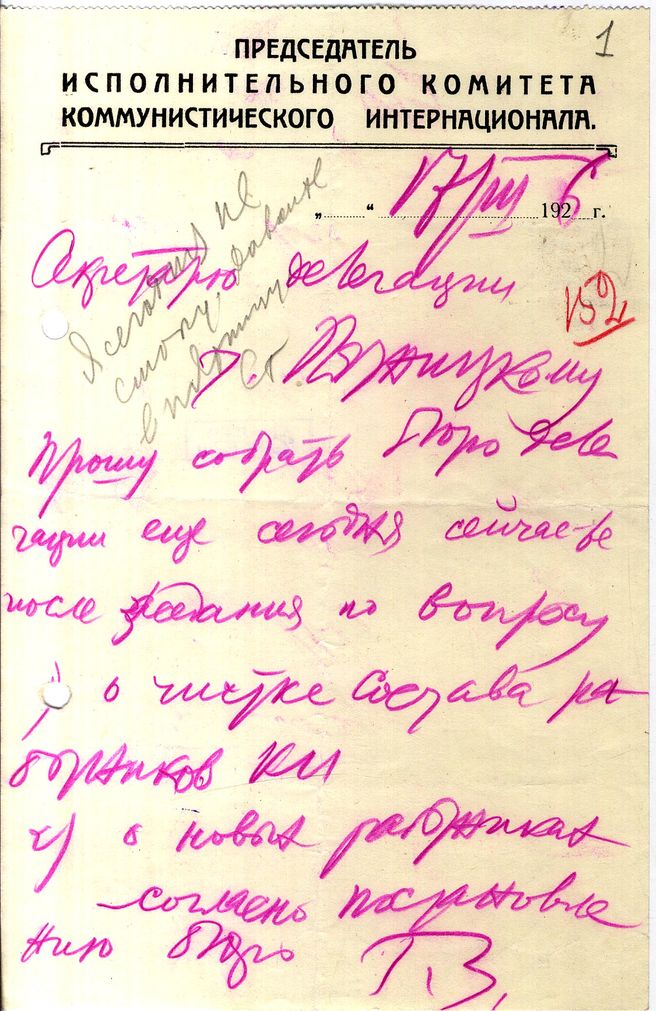 1
ПРЕДСЕДАТЕЛЬ
ИСПОЛНИТЕЛЬНОГО КОМИТЕТА
КОММУНИСТИЧЕСКОГО ИНТЕРНАЦИОНАЛА.
„ “ 17/III 1926 г.
Секретарю делегации
152
т. Пятницкому
Я сегодня не
могу, давайте
в пятницу
Ст.
Прошу собрать бюро деле
гации еще сегодня сейчас-же
после заседания по вопросу
1) о чистке состава ра-
ботников КИ
2) о новых работниках
согласно постановле
нию бюро
Г.З.